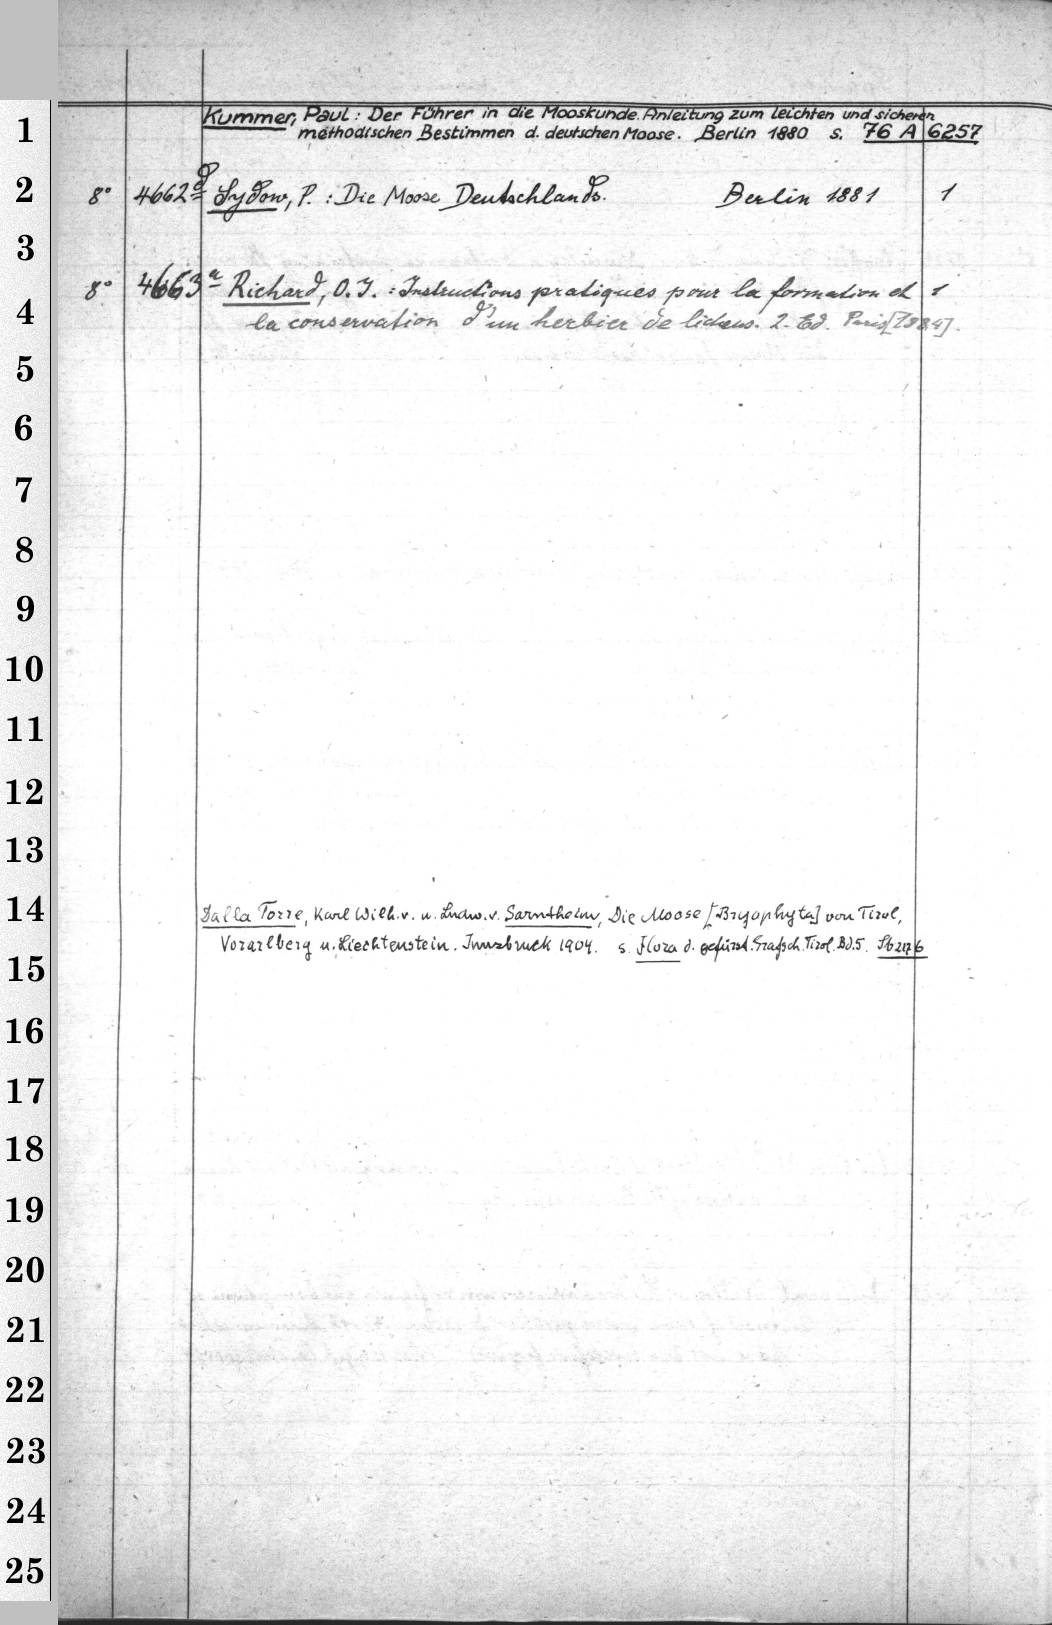 Kummer, Paul: Der Führer in die Mooskunde. Anleitung zum leichten und sicheren
methodischen Bestimmen d. deutschen Moose. Berlin 1880 s. 76 A 6257
8° 4662 d Sydow, P.: Die Moose Deutschlands. Berlin 1881 1
8° 4663 a Richard, O. J.: Instructions pratiques pour la formation et 1
la conservation d'un herbier de lichens. 2. Ed. Paris [1884].
Dalla Torre, Karl Wilh. v. u. Ludw. v. Sarntheim, Die Moose [Bryophyta] von Tirol,
Vorarlberg u. Liechtenstein. Innsbruck 1904. s. Flora d. gefürst. Grafsch. Tirol. Bd. 5.
1
2
3
4
5
6
7
8
9
10
11
12
13
14
15
16
17
18
19
20
21
22
23
24
25